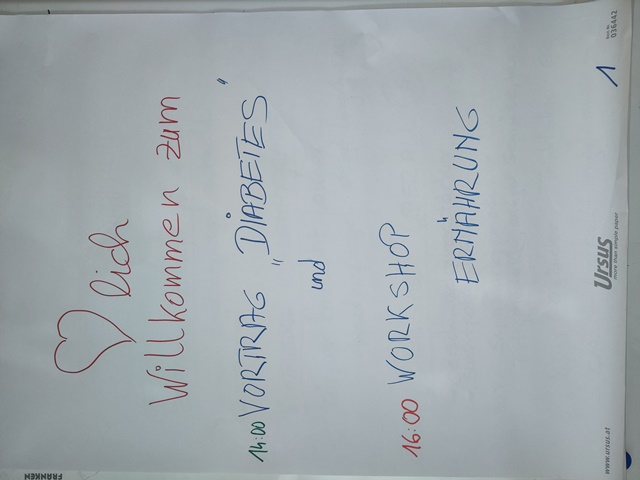 lich
Willkommen zum
14:00 VORTRAG "DIABETES"
und
16:00 WORKSHOP
ERNÄHRUNG
1
Ursus
more than simple paper
www.ursus.at
036442
FRANKEN